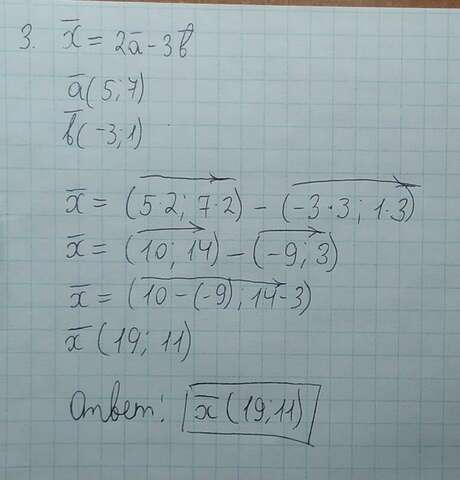 3. x̅ = 2a̅ - 3b̅
a̅ (5; 7)
b̅ (-3; 1)
x̅ = (5·2; 7·2) - (-3·3; 1·3)
x̅ = (10; 14) - (-9; 3)
x̅ = (10-(-9); 14-3)
x̅ (19; 11)
Ответ: x̅ (19; 11)